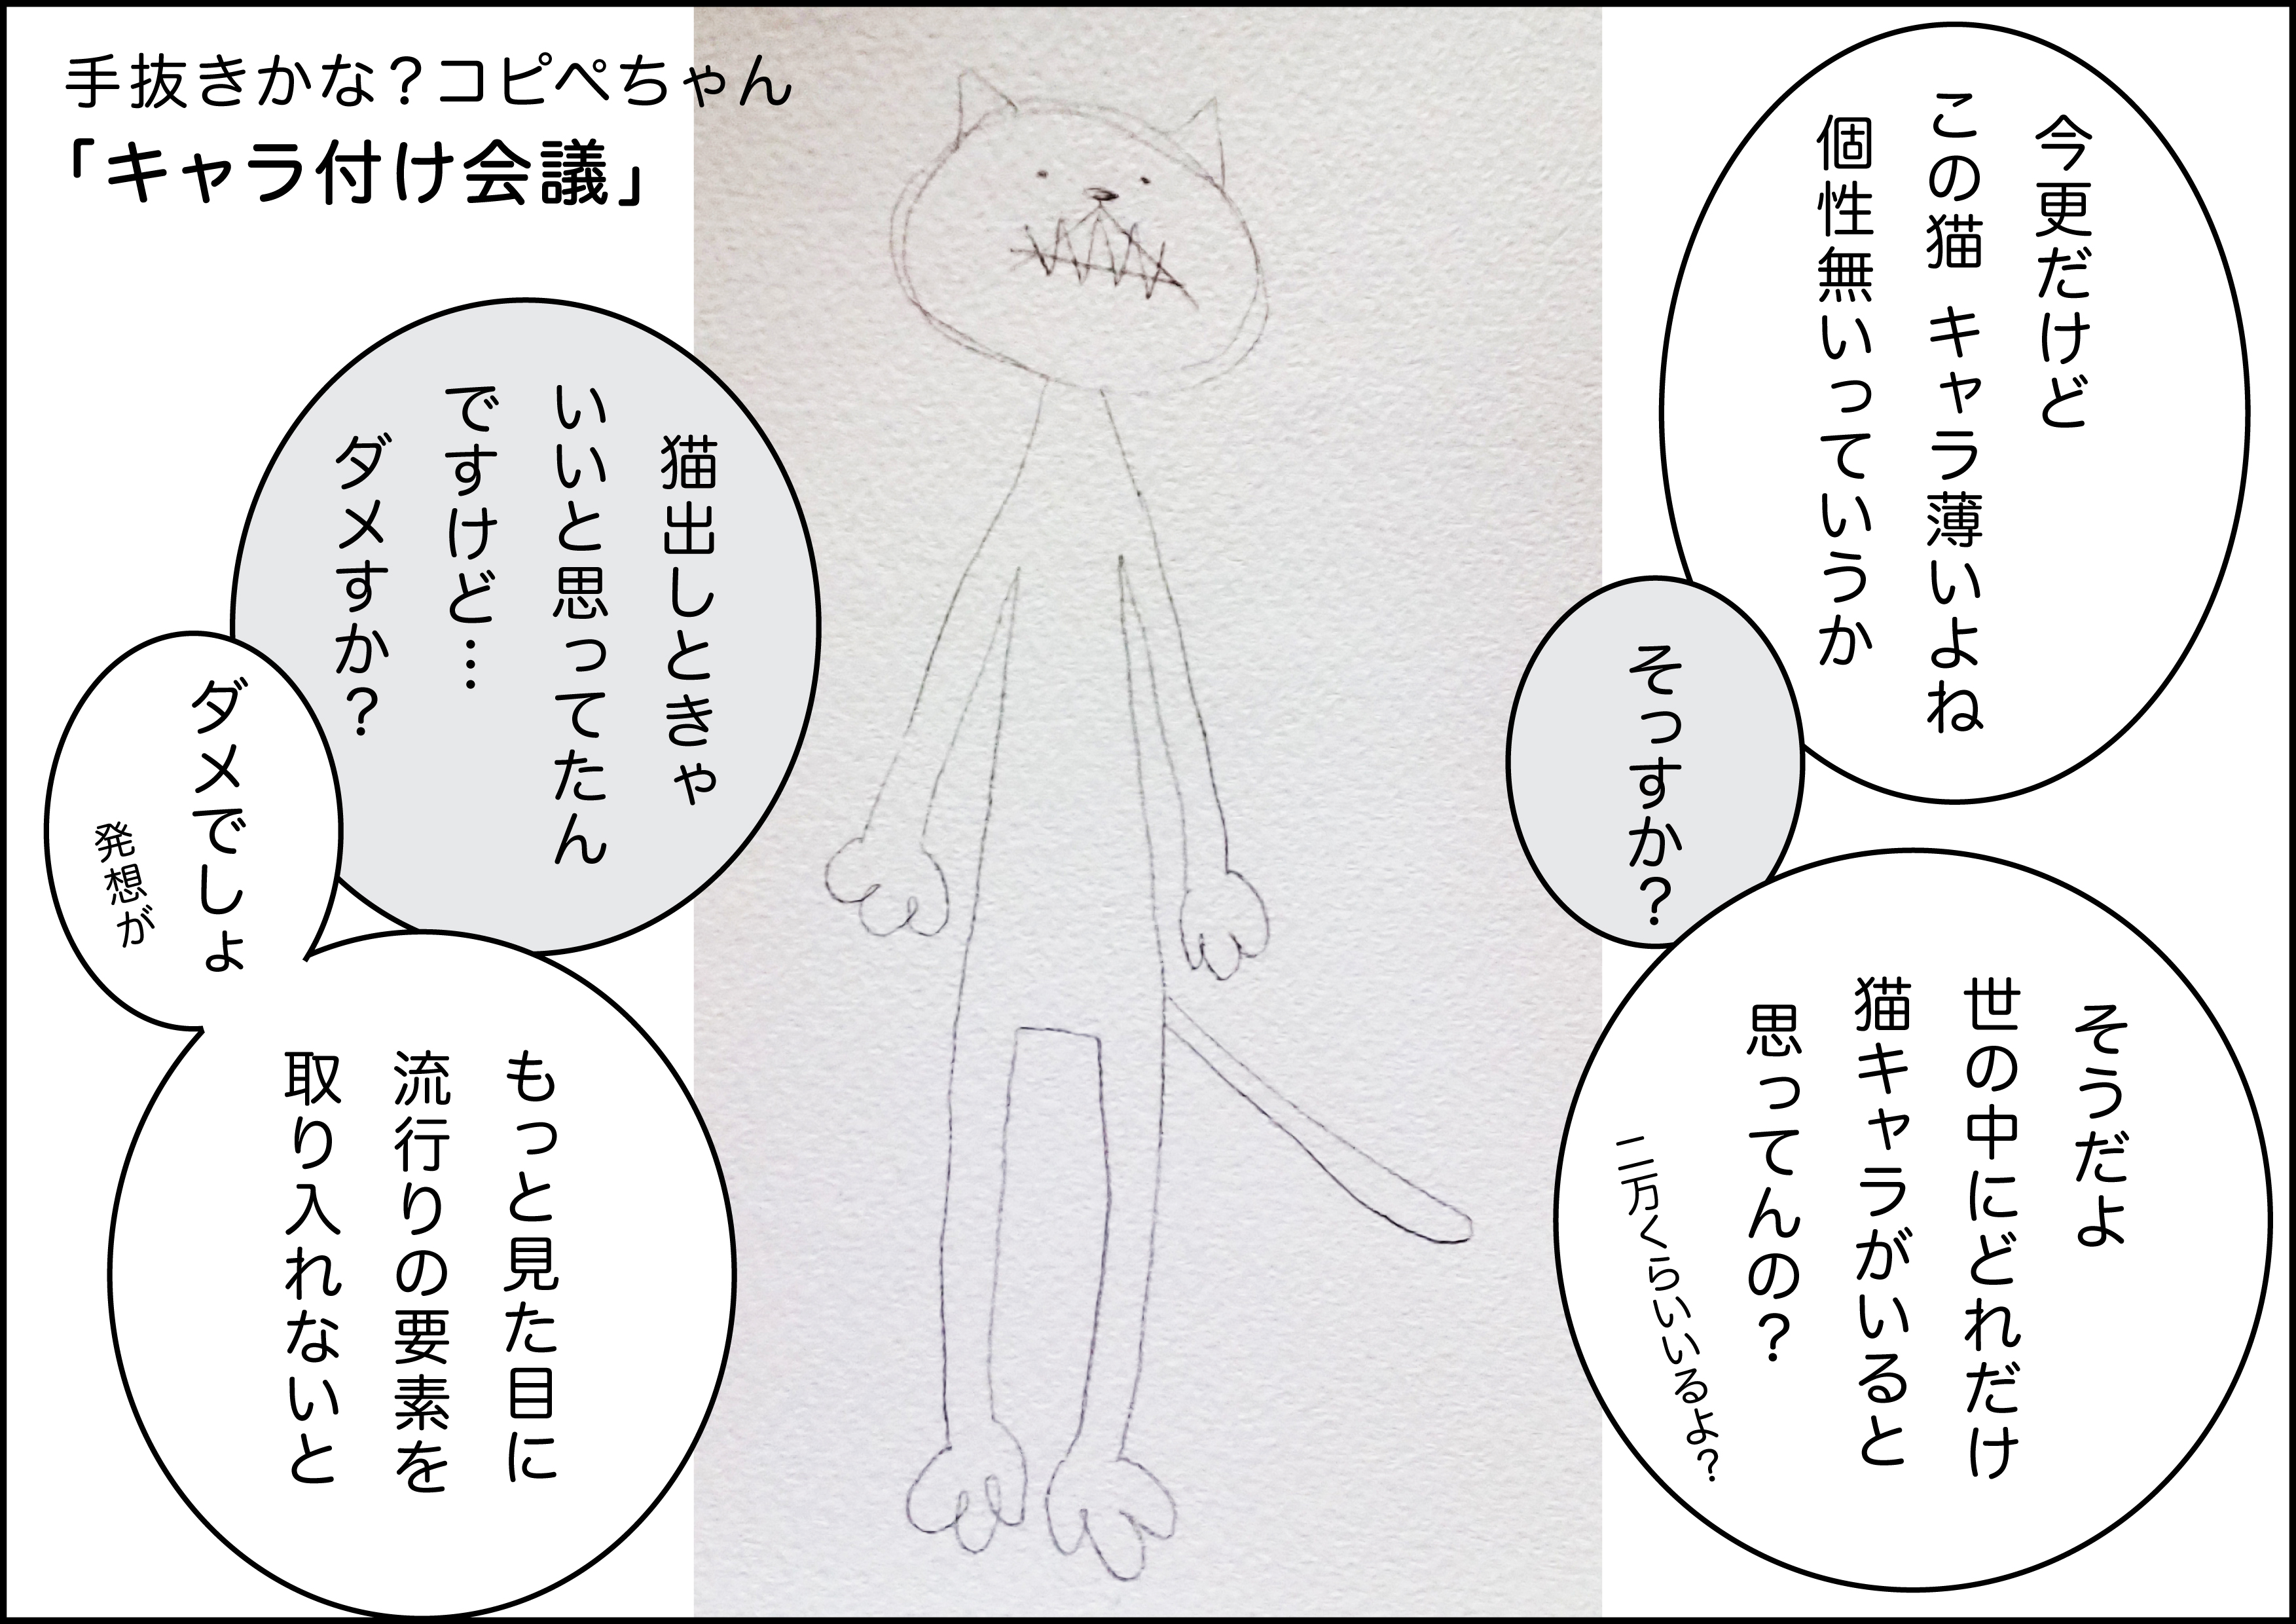 手抜きかな？コピペちゃん
「キャラ付け会議」
今更だけど
この猫 キャラ薄いよね
個性無いっていうか
そっすか？
そうだよ
世の中にどれだけ
猫キャラがいると
思ってんの？
二万くらいいるよ？
猫出しときゃ
いいと思ってたん
ですけど…
ダメすか？
ダメでしょ
発想が
もっと見た目に
流行りの要素を
取り入れないと